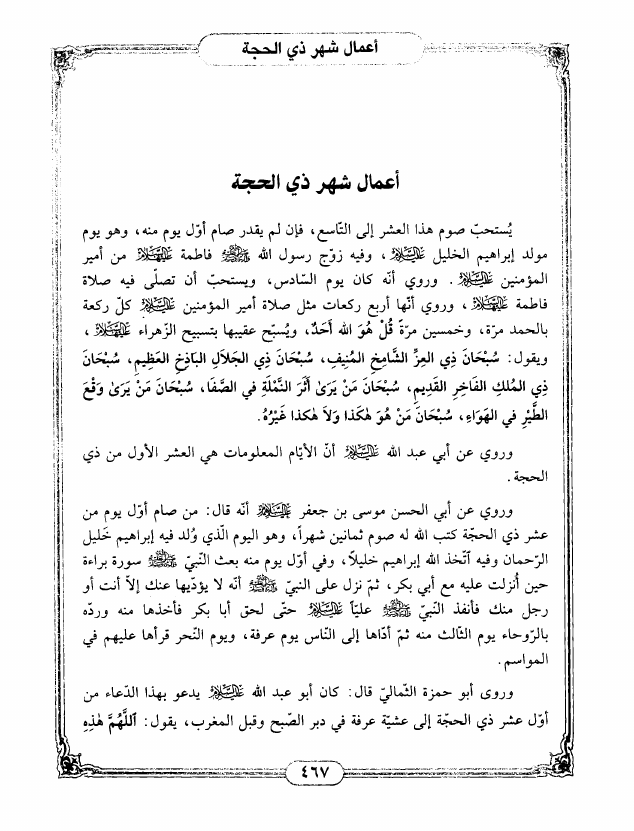 أعمال شهر ذي الحجة
أعمال شهر ذي الحجة
يُستحبّ صوم هذا العشر إلى التّاسع، فإن لم يقدر صام أوّل يوم منه، وهو يوم
مولد إبراهيم الخليل عليه السلام، وفيه زوّج رسول الله ﷺ فاطمة عليها السلام من أمير
المؤمنين عليه السلام. وروي أنّه كان يوم السّادس، ويستحبّ أن تصلّى فيه صلاة
فاطمة عليها السلام، وروي أنّها أربع ركعات مثل صلاة أمير المؤمنين عليه السلام كلّ ركعة
بالحمد مرّة، وخمسين مرّةً قُلْ هُوَ الله أَحَدٌ، ويُسبّح عقيبها بتسبيح الزّهراء عليها السلام،
ويقول: سُبْحَانَ ذِي العِزِّ الشَّامِخِ المُنِيفِ، سُبْحَانَ ذِي الجَلَالِ البَاذِخِ العَظِيمِ، سُبْحَانَ
ذِي المُلكِ الفَاخِرِ القَدِيمِ، سُبْحَانَ مَنْ يَرَىٰ أَثَرَ النَّمْلَةِ فِي الصَّفَا، سُبْحَانَ مَنْ يَرَىٰ وَقْعَ
الطَّيْرِ في الهَوَاءِ، سُبْحَانَ مَنْ هُوَ هٰكَذا وَلاَ هٰكذا غَيْرُهُ.
وروي عن أبي عبد الله عليه السلام أنّ الأيّام المعلومات هي العشر الأول من ذي
الحجة.
وروي عن أبي الحسن موسى بن جعفر عليه السلام أنّه قال: من صام أوّل يوم من
عشر ذي الحجّة كتب الله له صوم ثمانين شهراً، وهو اليوم الّذي وُلد فيه إبراهيم خَليل
الرّحمان وفيه اتّخذ الله إبراهيم خليلاً، وفي أوّل يوم منه بعث النّبيّ ﷺ سورة براءة
حين أُنزلت عليه مع أبي بكر، ثمّ نزل على النّبيّ ﷺ أنّه لا يؤدّيها عنك إلاّ أنت أو
رجل منك فأنفذ النّبيّ ﷺ عليّاً عليه السلام حتّى لحق أبا بكر فأخذها منه وردّه
بالرّوحاء يوم الثّالث منه ثمّ أدّاها إلى النّاس يوم عرفة، ويوم النّحر قرأها عليهم في
المواسم.
وروى أبو حمزة الثّماليّ قال: كان أبو عبد الله عليه السلام يدعو بهذا الدّعاء من
أوّل عشر ذي الحجّة إلى عشيّة عرفة في دبر الصّبح وقبل المغرب، يقول: ٱللّٰهُمَّ هٰذِهِ
٤٦٧